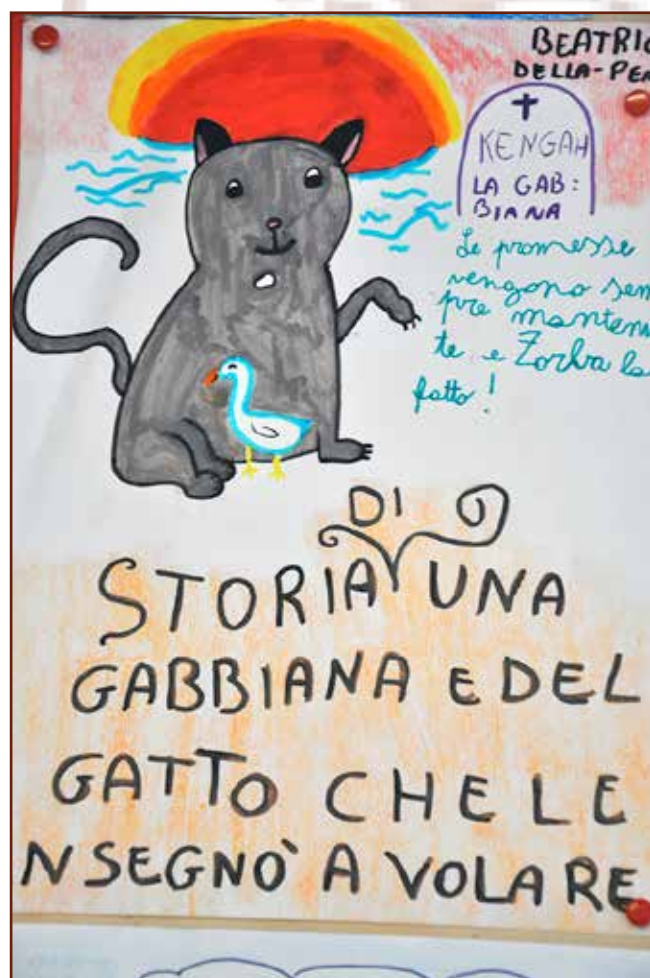 BEATRIC
DELLA-PE
KENGAH
LA GAB:
BIANA
Le promesse
vengono sem
pre mantenu
te e Zorba la
fatto!
DI
STORIA UNA
GABBIANA E DEL
GATTO CHE LE
NSEGNÒ A VOLARE